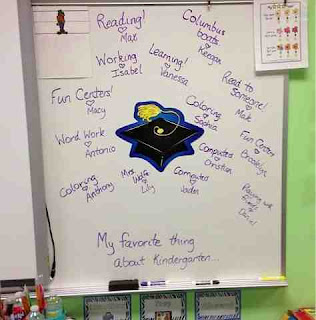 Reading!
Max
Columbus
boats
Keegan
Working
Isabel
Learning!
Vanessa
Read to
Someone!
Mak
Fun Centers!
Macy
Coloring
Sophia
Fun Centers
Word Work
Antonio
Computers
Christian
Coloring
Anthony
Mrs.
Lily
Computers
Jaden
with
My favorite thing
about Kindergarten...